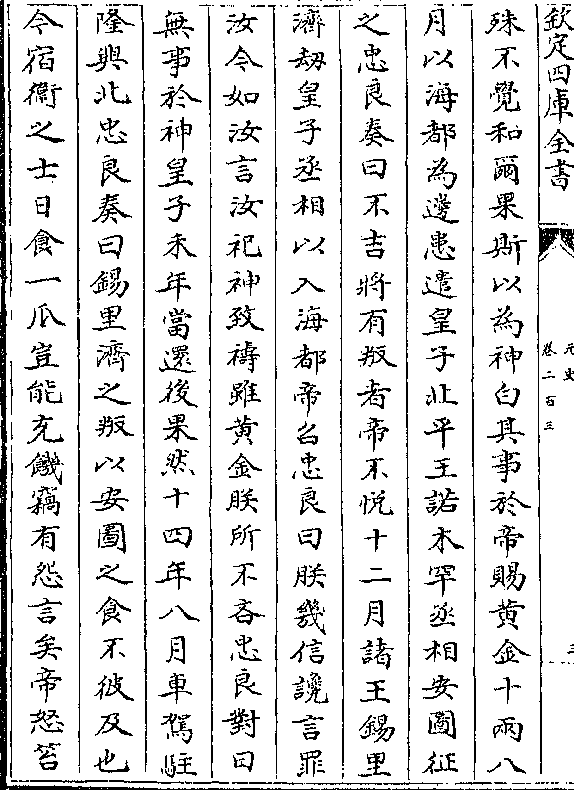 欽定四庫全書
元史
卷二百三
殊不覺和爾果斯以為神白其事於帝賜黄金十兩八
月以海都為邊患遣皇子北平王諾木罕丞相安圖征
之忠良奏曰不吉將有叛者帝不悦十二月諸王錫里
濟劫皇子丞相以入海都帝召忠良曰朕幾信讒言罪
汝今如汝言汝祀神致禱雖黄金朕所不吝忠良對曰
無事於神皇子未年當還後果然十四年八月車駕駐
隆興北忠良奏曰錫里濟之叛以安圖之食不彼及也
今宿衞之士日食一瓜豈能充饑竊有怨言矣帝怒笞